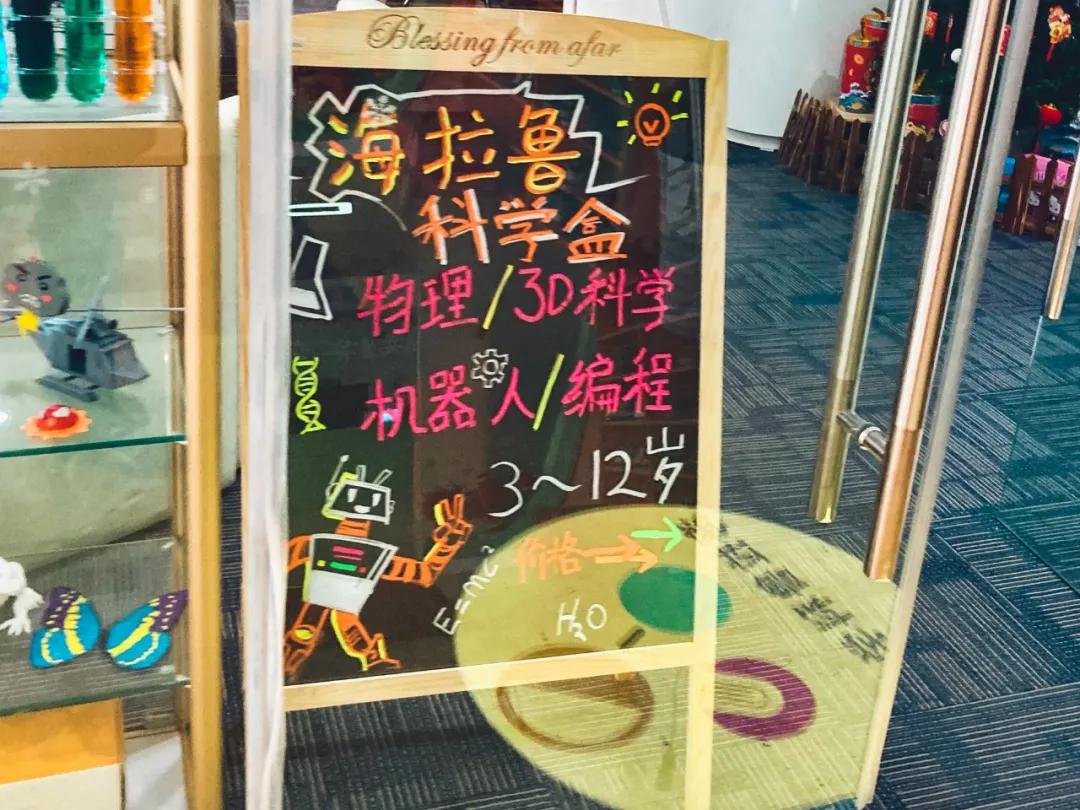 Blessing from afar
海拉鲁
科学盒
物理/3D科学
机器人/编程
3~12岁
价格
E=mc²
H₂O